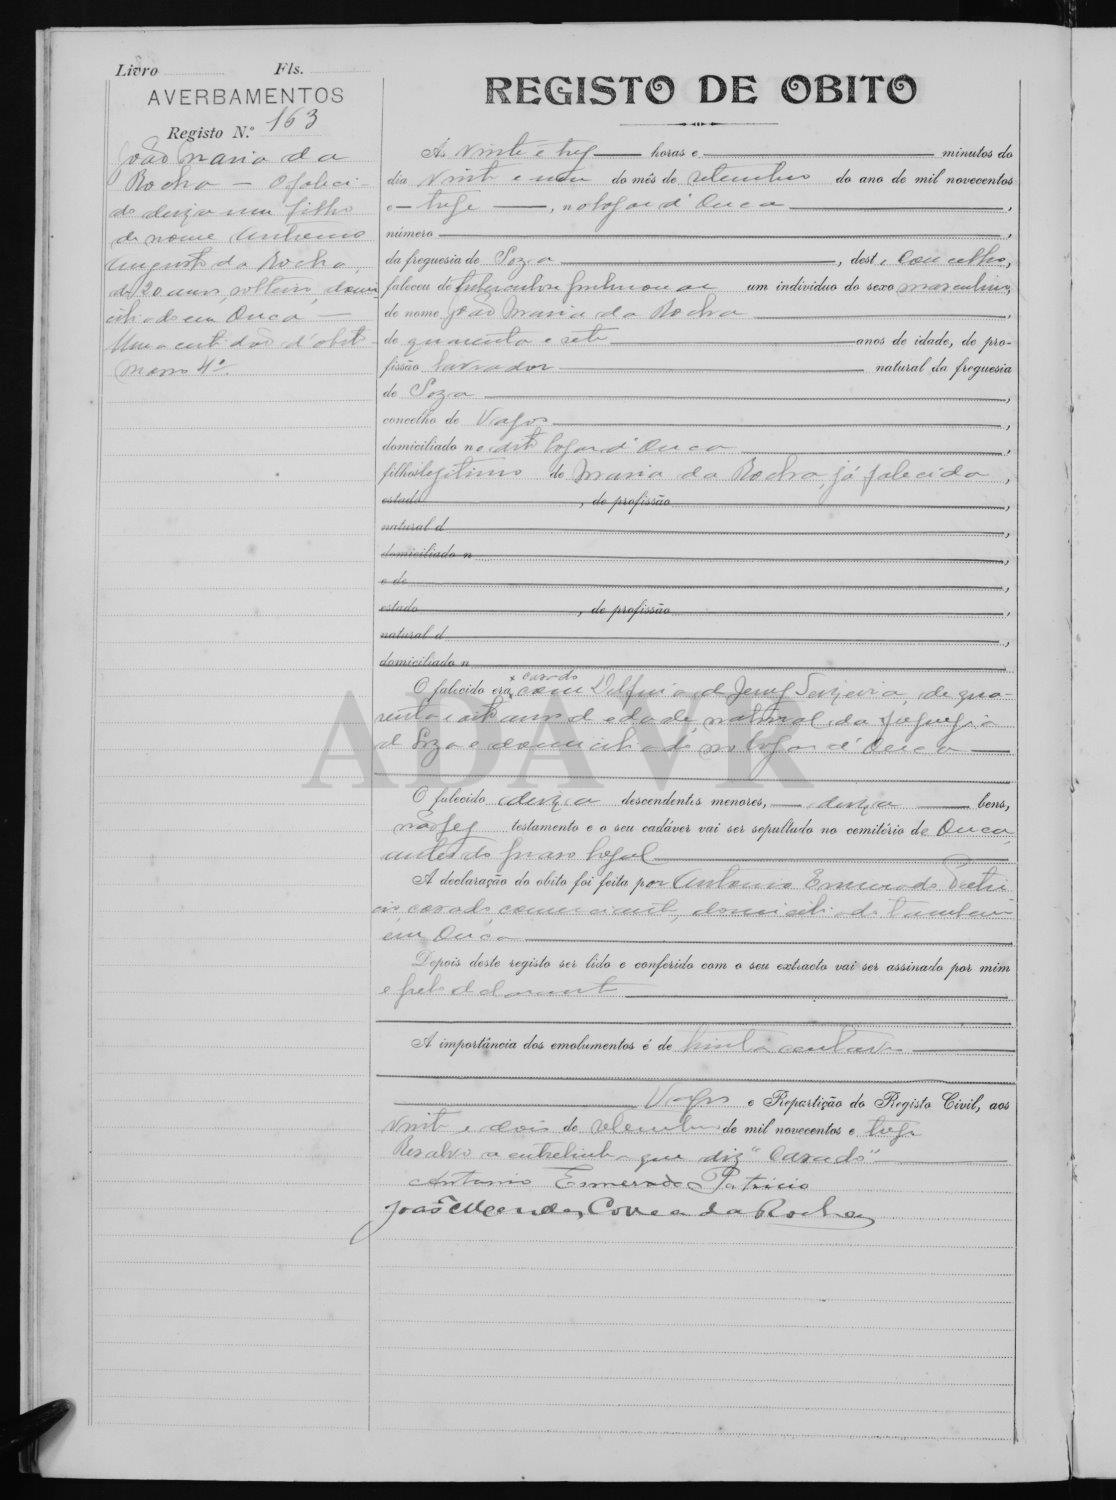 Livro Fls.
AVERBAMENTOS
Registo N.º 163
João Maria da
Rocha — O faleci-
do deixa um filho
de nome Antonio
Augusto da Rocha,
de 20 anos, solteiro, domi
ciliado em Ouca —
Uma certidão d'obito
maço 4º.
REGISTO DE OBITO
Ás vinte e tres horas e minutos do
dia vinte e um do mês de setembro do ano de mil novecentos
e treze, no logar d'Ouca,
número,
da freguesia de Soza, deste concelho,
faleceu de tuberculose pulmonar um individuo do sexo masculino,
de nome João Maria da Rocha,
de quarenta e sete anos de idade, de pro-
fissão lavrador natural da freguesia
de Soza,
concelho de Vagos,
domiciliado no dito logar d'Ouca,
filho ilegitimo de Maria da Rocha, já falecida,
estado, de profissão,
natural d,
domiciliado n,
e de,
estado, de profissão,
natural d,
domiciliado n
casado
O falecido era com Delfina de Jesus, de qua-
renta e oito anos de edade, natural da freguesia
de Soza e domiciliada no logar d'Ouca
O falecido deixa descendentes menores, deixa bens,
não fez testamento e o seu cadáver vai ser sepultado no cemitério de Ouca,
antes do praso legal
A declaração do obito foi feita por Antonio Esmerado Patri
cio, casado, comerciante, domiciliado tambem
em Ouca
Depois deste registo ser lido e conferido com o seu extracto vai ser assinado por mim
e pelo declarante
A importância dos emolumentos é de trinta centavos
Vagos e Repartição do Registo Civil, aos
vinte e dois de setembro de mil novecentos e treze
Resalvo a entrelinha que diz "Casado"
Antonio Esmerado Patricio
João Mendes Correa da Rocha
ADAVR